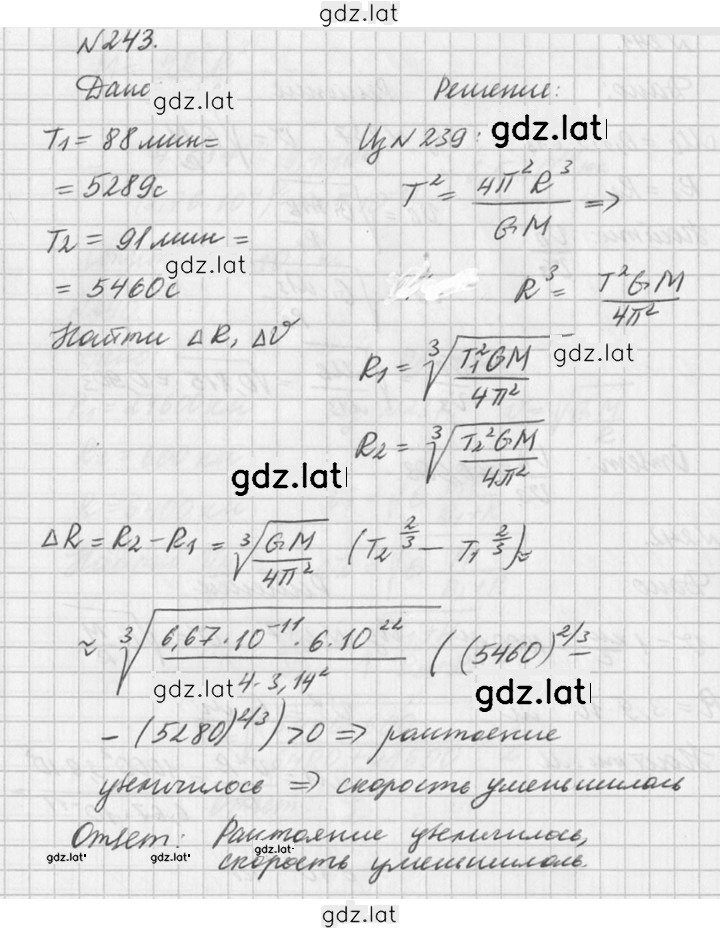 gdz.lat
№243.
Дано
gdz.lat
Решение:
T₁ = 88 мин =
= 5289с
T₂ = 91 мин =
gdz.lat
= 5460с
Найти ΔR, Δv
Из №239:
gdz.lat
T² = 4π²R³/GM =>
R³ = T²GM/4π²
gdz.lat
R₁ = ∛(T₁²GM/4π²)
R₂ = ∛(T₂²GM/4π²)
gdz.lat
ΔR = R₂ - R₁ = ∛(GM/4π²) (T₂^(2/3) - T₁^(2/3)) ≈
≈ ∛(6,67·10⁻¹¹·6·10²²/4·3,14²) ((5460)^(2/3) -
gdz.lat
gdz.lat
- (5280)^(2/3)) > 0 => расстояние
увеличилось => скорость уменьшилась
Ответ: Расстояние увеличилось,
скорость уменьшилась.
gdz.lat
gdz.lat
gdz.lat
gdz.lat
gdz.lat